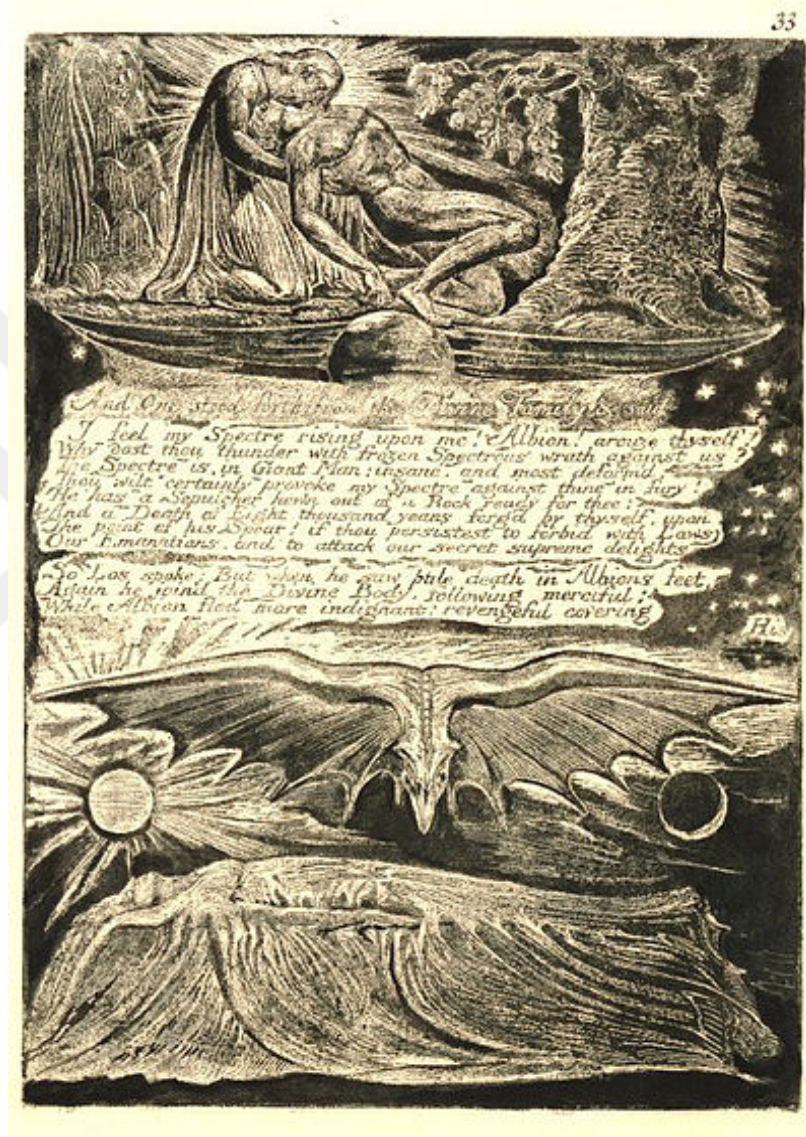 33
And One stood forth from the Divine Family & said
I feel my Spectre rising upon me! Albion! arouze thyself!
Why dost thou thunder with frozen Spectrous wrath against us?
The Spectre is, in Giant Man; insane, and most deform'd.
Thou wilt certainly provoke my Spectre against thine in fury!
He has a Sepulcher hewn out of a Rock ready for thee:
And a Death of Eight thousand years forg'd by thyself, upon
The point of his Spear! if thou persistest to forbid with Laws
Our Emanations, and to attack our secret supreme delights
So Los spoke: But when he saw pale death in Albions feet,
Again he join'd the Divine Body, following merciful;
While Albion fled more indignant: revengeful covering
His